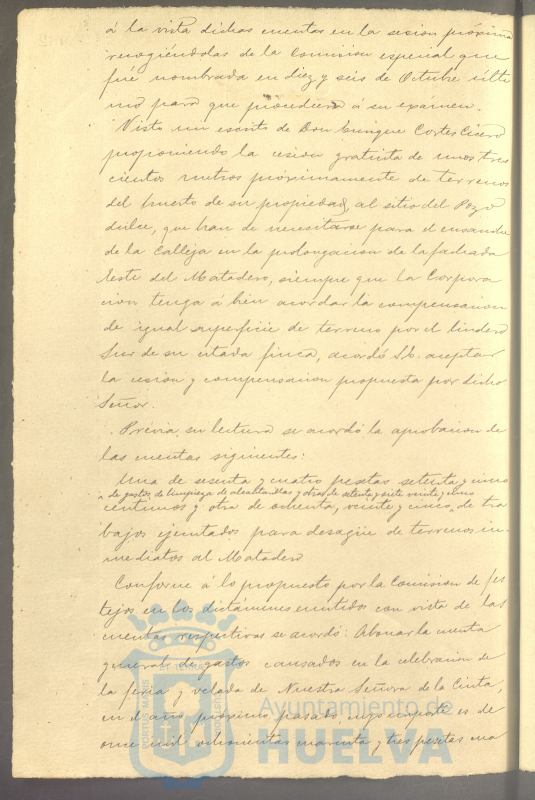 á la vista dichas cuentas en la sesion próxima
recogiéndolas de la Comision especial que
fué nombrada en diez y seis de Octubre últi
mo para que procediera á su examen.
Visto un escrito de Don Enrique Cortes Cicero
proponiendo la cesion gratuita de unos tres
cientos metros próximamente de terrenos
del huerto de su propiedad, al sitio del Pozo
dulce, que han de necesitarse para el ensanche
de la Calleja en la prolongacion de la fachada
Este del Matadero, siempre que la Corpora
cion tenga á bien acordar la compensacion
de igual superficie de terreno por el lindero
Sur de su citada finca, acordó S.E. aceptar
la cesion y compensacion propuesta por dicho
Señor.
Prévia su lectura se acordó la aprobacion de
las cuentas siguientes:
Una de sesenta y cuatro pesetas setenta y cinco
de gastos de limpieza de alcantarillas y otra de setenta y siete veinte y cinco
centimos y otra de ochenta, veinte y cinco, de tra
bajos ejecutados para desagüe de terrenos in-
mediatos al Matadero
Conforme á lo propuesto por la Comision de fes
tejos en los dictámenes emitidos con vista de las
cuentas respectivas se acordó: Abonar la cuenta
general de gastos causados en la celebracion de
la feria y velada de Nuestra Señora de la Cinta,
en el año próximo pasado, cuyo importe es de
once mil ochocientas noventa y tres pesetas
Ayuntamiento de
HUELVA